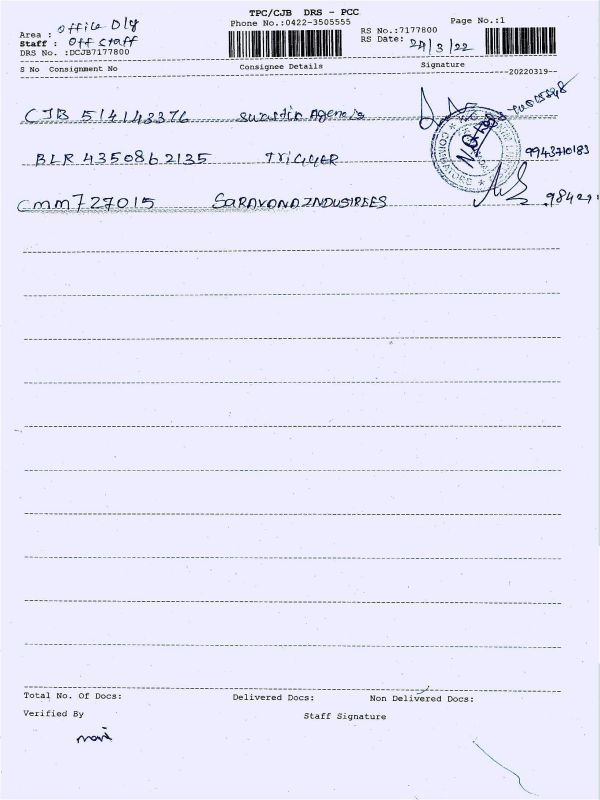 TPC/CJB DRS - PCC
Phone No.:0422-3505555
Page No.:1
Area : office Dly
Staff : Off Staff
DRS No. :DCJB7177800
RS No.:7177800
RS Date: 24/3/22
S No Consignment No Consignee Details Signature
20220319
CJB 514143376
Agencis
BLR 4350862135 TRIGGER 9943710183
CMM727015 SARAVANAINDUSIREES
COIMBATORE
Total No. Of Docs: Delivered Docs: Non Delivered Docs:
Verified By Staff Signature